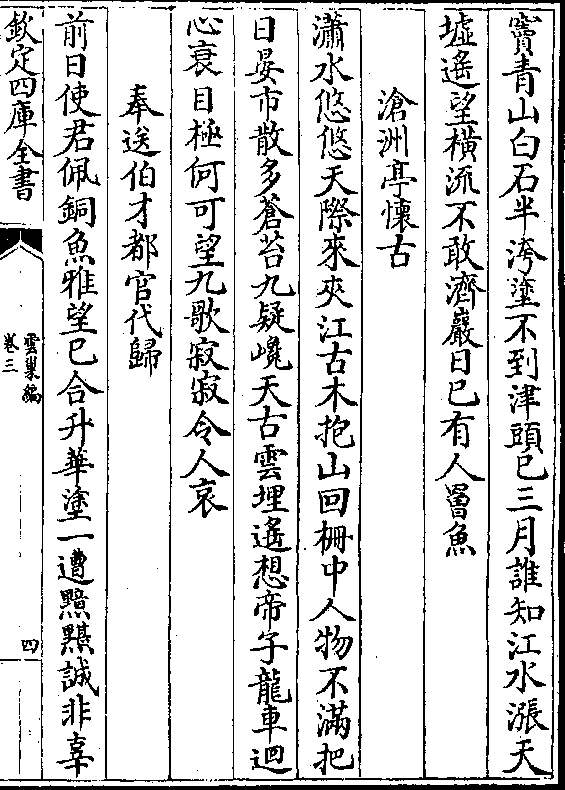 竇青山白石半洿塗不到津頭已三月誰知江水漲天
墟遙望横流不敢濟巖日已有人罾魚
滄洲亭懷古
瀟水悠悠天際來夾江古木抱山回柵中人物不滿把
日晏市散多蒼苔九疑嶢天古雲埋遙想帝子龍車廻
心衰目極何可望九歌寂寂令人哀
奉送伯才都官代歸
前日使君佩銅魚雅望已合升華塗一遭黯黮誠非辜
欽定四庫全書
雲巢編
卷三
四